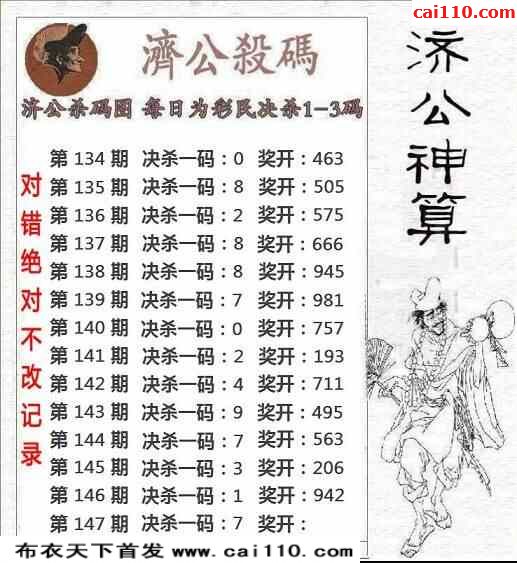 cai110.com
濟公殺碼
济公杀码图 每日为彩民决杀1-3码
济公神算
对错绝对不改记录
第 134 期 决杀一码：0 奖开：463
第 135 期 决杀一码：8 奖开：505
第 136 期 决杀一码：2 奖开：575
第 137 期 决杀一码：8 奖开：666
第 138 期 决杀一码：8 奖开：945
第 139 期 决杀一码：7 奖开：981
第 140 期 决杀一码：0 奖开：757
第 141 期 决杀一码：2 奖开：193
第 142 期 决杀一码：4 奖开：711
第 143 期 决杀一码：9 奖开：495
第 144 期 决杀一码：7 奖开：563
第 145 期 决杀一码：3 奖开：206
第 146 期 决杀一码：1 奖开：942
第 147 期 决杀一码：7 奖开：
布衣天下首发 www.cai110.com